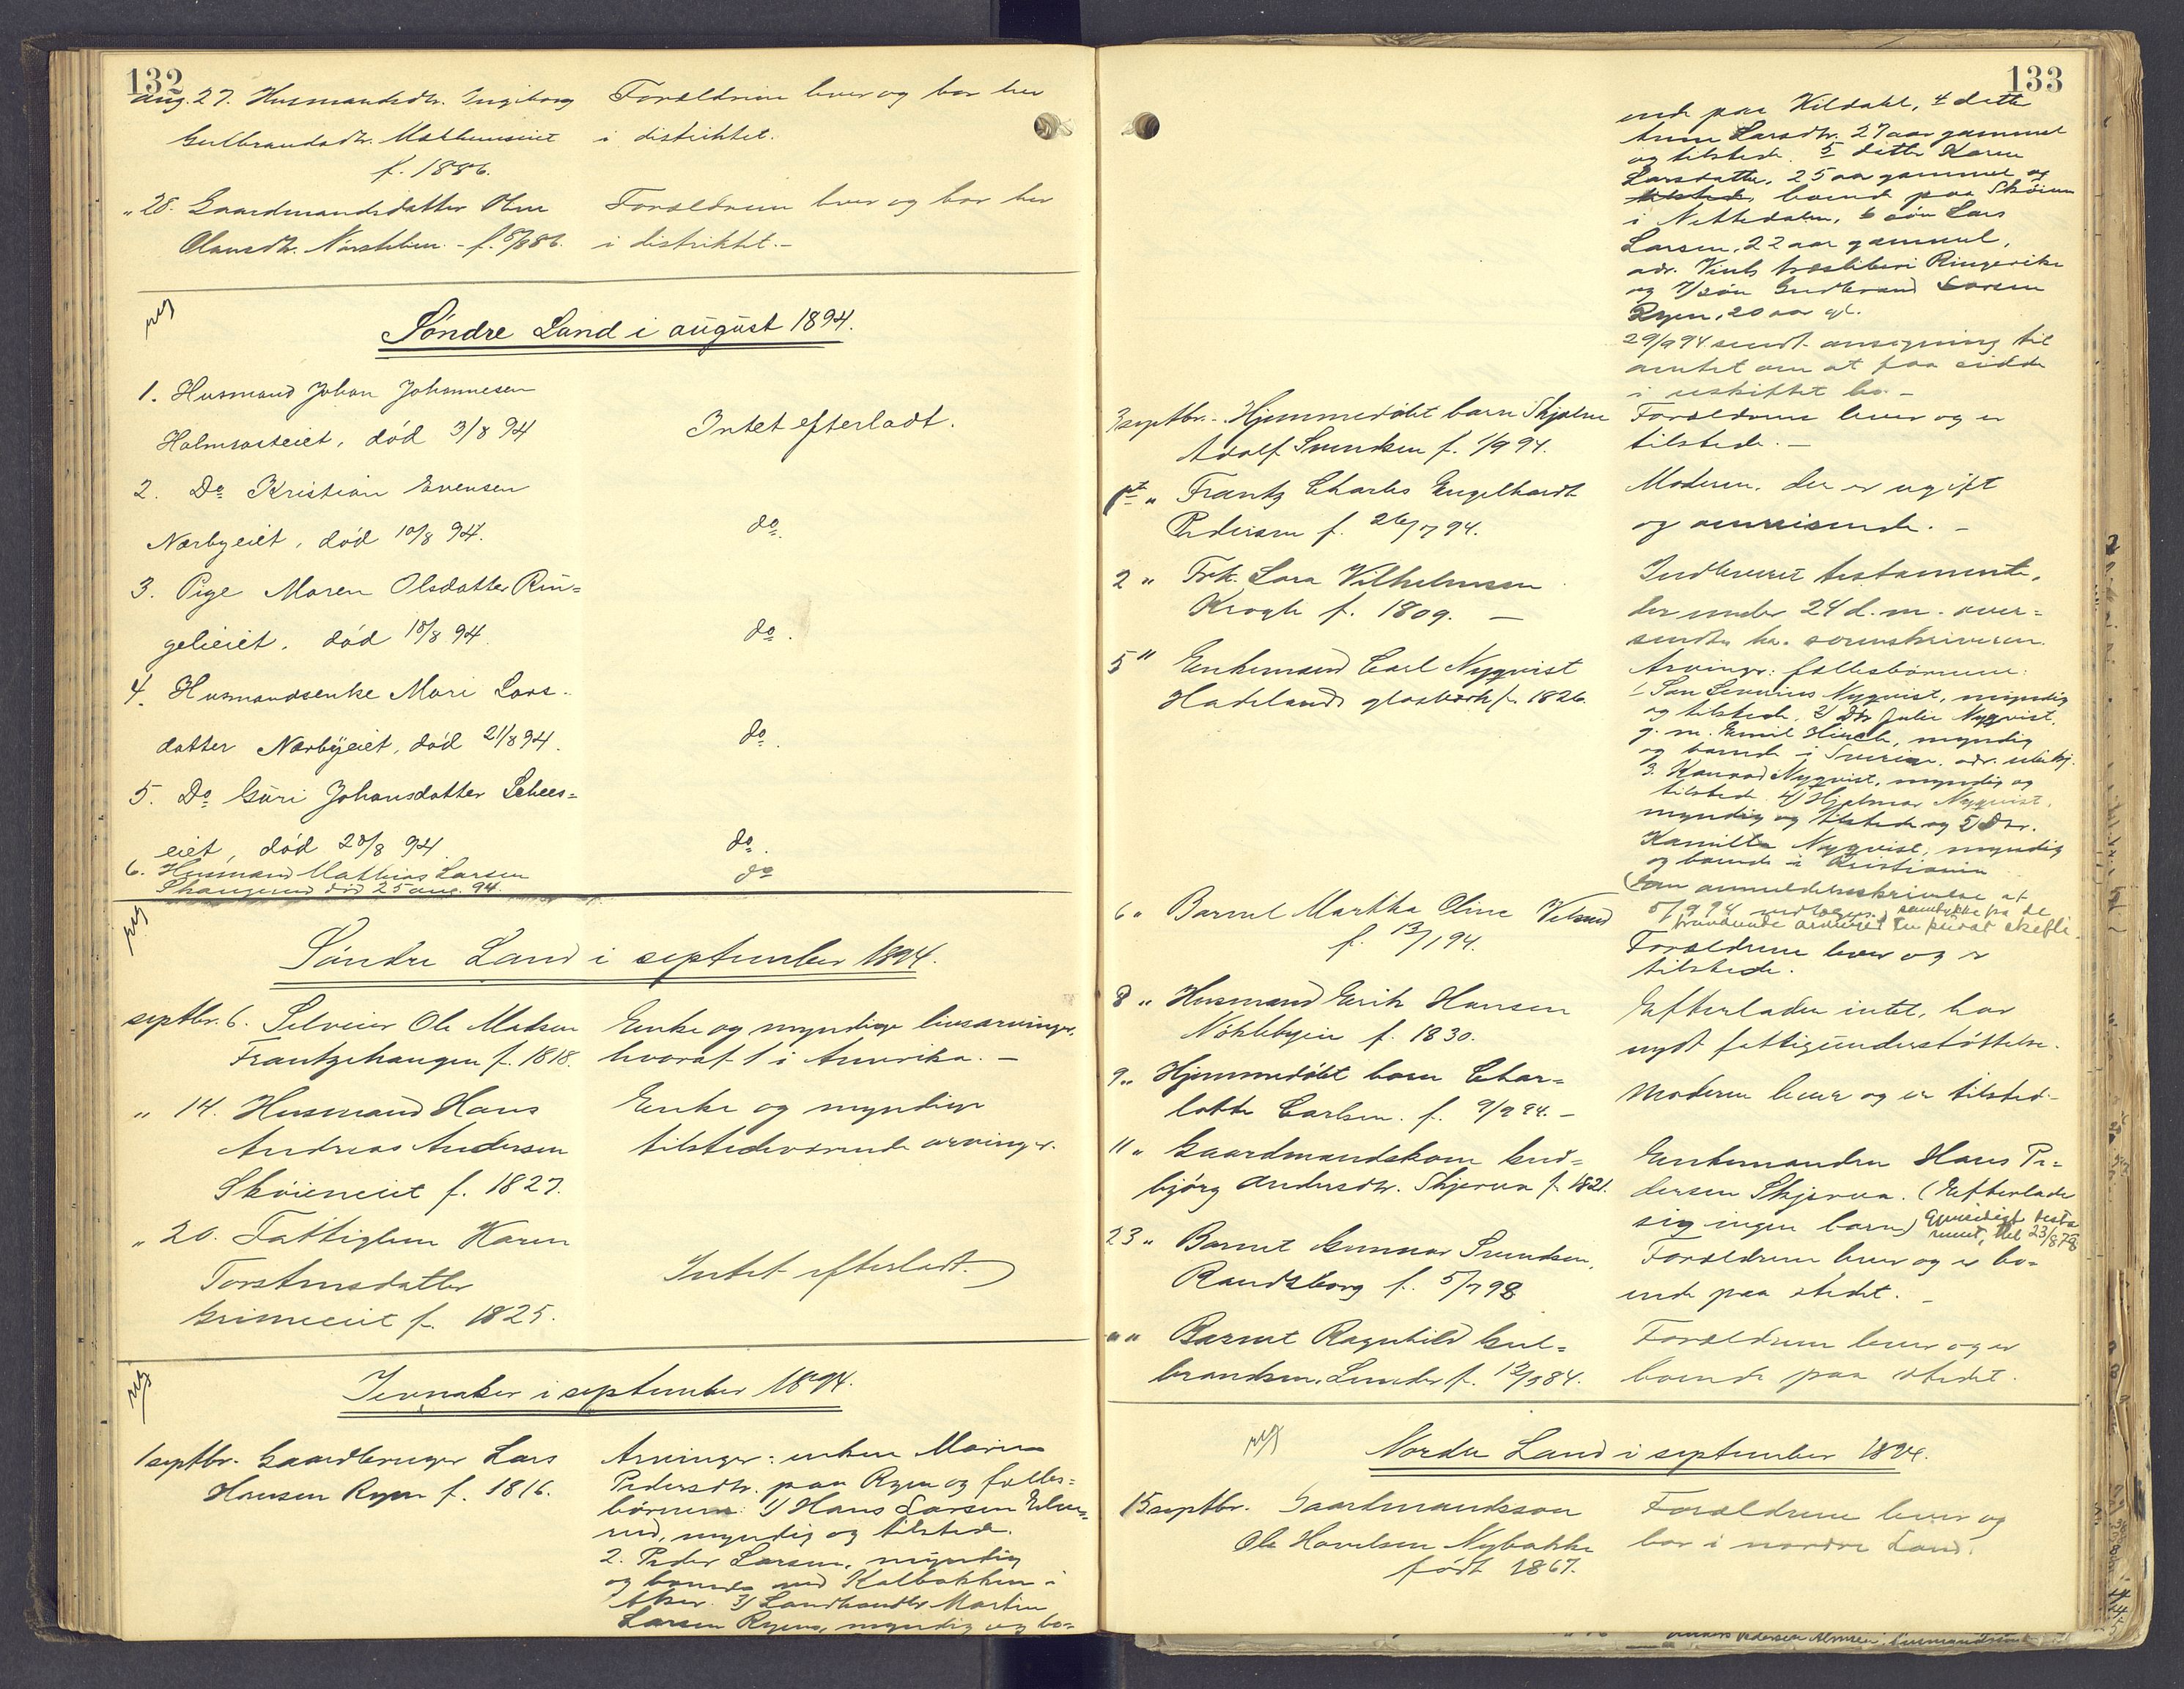 132
aug. 27. Husmandsdtr. Ingeborg
Gulbrandsdtr.
f. 1886.
Forældrene lever og bor her
i distriktet.
" 28. Gaardmandsdatter
Olausdtr. f. 5/8 86.
Forældrene lever og bor her
i distriktet.-
reg
Søndre Land i august 1894.
1. Husmand Johan Johannesen
død 3/8 94
Intet efterladt.
2. Do Kristian Evensen
Nærbyeiet, død 10/8 94.
do.
3. Pige Maren Olsdatter Rin=
gelieiet, død 18/8 94.
do.
4. Husmandsenke Mari Lars-
datter Nærbyeiet, død 21/8 94.
do.
5. Do Guri Johansdatter Schees=
eiet, død 20/8 94
do.
6. Husmand Mathias Larsen
død 25 aug. 94.
do
reg
Søndre Land i september 1894.
septbr. 6. Selveier Ole Madsen
Frantzehaugen f. 1818.
Enke og myndige livsarvinger,
hvoraf 1 i Amerika. -
" 14. Husmand Hans
Andreas Andersen
Skøieneiet f. 1827.
Enke og myndige
tilstedeværende arvinger.
" 20. Fattiglem Karen
Torstensdatter
Grimeeiet f. 1825.
Intet efterladt.
reg
Jevnaker i september 1894.
1 septbr. Gaardbruger Lars
Hansen Ryen f. 1816.
Arvinger: enken Maren
Pedersdtr. paa Ryen og fælles=
børnene: 1) Hans Larsen
myndig og tilstede.
2. Peder Larsen, myndig
og boende ved Kalbakken i
Aker. 3) Landhandler Martin
Larsen Ryen, myndig og bo=
133
ende paa Kildahl, 4 datter
Anne Larsdtr. 27 aar gammel
og tilstede. 5 datter Karen
Larsdatter, 25 aar gammel og
tilstede boende paa Skøien
i Nittedalen, 6 søn Lars
Larsen, 22 aar gammel,
adr. træsliberi Ringerike
og 7/ søn Gudbrand Larsen
Ryen, 20 aar gl.
29/9 94 sendt ansøgning til
amtet om at faa sidde
i uskiftet bo.-
3 septbr. - Hjemmedøbt barn
Adolf Svendsen f. 1/9 94.
Forældrene lever og er
tilstede.-
" Frantz Charles Engelhardt
Pedersen f. 26/7 94.
Moderen, der er ugift
og omreisende. -
2 " Frk. Lara Vilhelmsen
Krogh f. 1809. -
Indleveret testamente,
der under 24 d. m. over=
sendtes hr. sorenskriveren.
5 " Enkemand Carl Nyqvist
Hadelands glasværk f. 1826.
Arvinger: fællesbørnene:
1 Søn Severius Nyqvist, myndig
og tilstede, 2) Dtr Julie Nyqvist,
g. m. Emil myndig
og boende i Sverige, adr. ubekj.
3. Konrad Nyqvist, myndig og
tilstede 4) Hjalmar Nyqvist,
myndig og tilstede og 5 Dtr.
Kamilla Nyqvist, myndig
og boende i Kristiania
anmeldelsesskrivelse at
5/9 94 samtykke fra de
arvinger til privat skifte
6 " Barnet Martha Oline
f. 13/1 94.
Forældrene lever og er
tilstede.
8 " Husmand Erik Hansen
Nøklebyeie f. 1830.
Efterlader intet, har
nydt fattigunderstøttelse.
9 " Hjemmedøbt barn Char=
lotte Carlsen. f. 9/9 94. -
Moderen lever og er tilstede-
11 " Gaardmandskone Gud=
bjørg Andersdtr. Skjerva f. 1821.
Enkemanden Hans Pe=
dersen Skjerva. (Efterlader
sig ingen barn) Gjensidigt testa
ment, 23/8 78
23 " Barnet Gunnar Svendsen,
Randsborg f. 5/7 93
Forældrene lever og er bo=
ende paa stedet. -
" " Barnet Ragnhild Gul=
brandsen, Lunder f. 12/5 84.
Forældrene lever og er
boende paa stedet.
reg
Nordre Land i september 1894.
15 septbr. Gaardmandssøn
Ole Havelsen Nybakke
født 1867.
Forældrene lever og
bor i nordre Land.